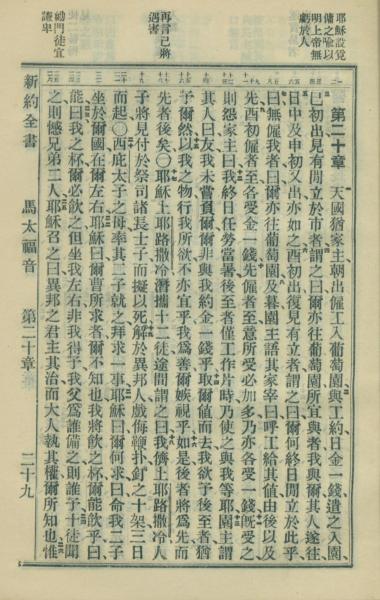 耶穌設覓
傭之喻以
明上帝無
虧於人
再言己將
遇害
勸門徒宜
謙卑
第二十章　天國猶家主朝出僱工入葡萄園與工約日金一錢遣之入園
巳初出見有閒立於市者謂之曰爾亦往葡萄園所宜與者我與爾其人遂往
日中及申初又出亦如之酉初出復見有立者謂之曰爾何終日閒立於此乎
曰無僱我者曰爾亦往葡萄園及暮園主語其家宰曰呼工給其值由後以及
先酉初僱者至各受金一錢先僱者至意所受必加多乃亦各受一錢旣受之
則怨家主曰我終日任勞當暑後至者僅工作片時乃使之與我等耶園主謂
其人曰友我未嘗負爾爾非與我約金一錢乎取爾值而去我欲予後至者猶
予爾然以我之物行我所欲不亦宜乎我爲善爾嫉視乎如是後者將爲先而
先者後矣〇耶穌上耶路撒冷潛攜十二徒途間謂之曰我儕上耶路撒冷人
子將見付於祭司諸長士子而擬以死解於異邦人戲侮鞭扑釘之十架三日
而起〇西庇太子之母率其二子就之拜求一事耶穌曰爾何求曰命我二子
坐於爾國在爾左右耶穌曰爾曹所求者爾不知也我將飲之杯爾能飲乎曰
能曰我之杯爾必飲之但坐我左右非我得予我父爲誰備之則誰予十徒聞
之則憾兄弟二人耶穌召之曰異邦之君主其治而大人執其權爾所知也惟
新約全書　馬太福音　第二十章　二十九